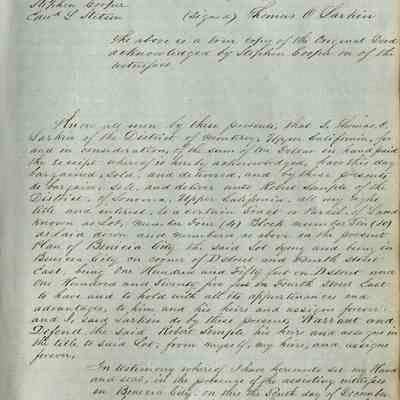 Stephen Cooper
Edwd L Stetson (Signed) Thomas O Larkin
the above is a true copy of the Original Deed
acknowledged by Stephen Cooper on of the
witnesses
Know all men by these presents, that I, Thomas O.
Larkin of the District of Monterey, Upper California, for
and in consideration, of the sum of One Dollar in hand paid
the receipt whereof is hereby acknowledged, have this day
bargained, Sold, and delivered, and by these presents
do bargain, Sell, and deliver unto Robert Semple of the
District, of Sonoma, Upper California, all my right
title and interest, to a certain Tract or Parcel, of Land
known as Lot, number Four (4) Block number Ten (10)
as laid down and numbered as above on the present
Plan of Benicia City the said Lot lying and being in
Benicia City on corner of D street and Fourth street
East, being One Hundred and Fifty feet on D street and
One Hundred and Twenty five feet on Fourth Street East
to have and to hold with all the appurtenances and
advantages, to him and his heirs and assigns forever
and I, said Larkin do by these presents, Warrant and
Defend, the said Robert Semple his heirs and assigns in
the title to said Lot; from myself, my heirs, and assigns
forever,
In testimony whereof I have hereunto set my Hand
and seal, in the presence of the assisting witnesses
in Benicia City on this the Tenth day of December